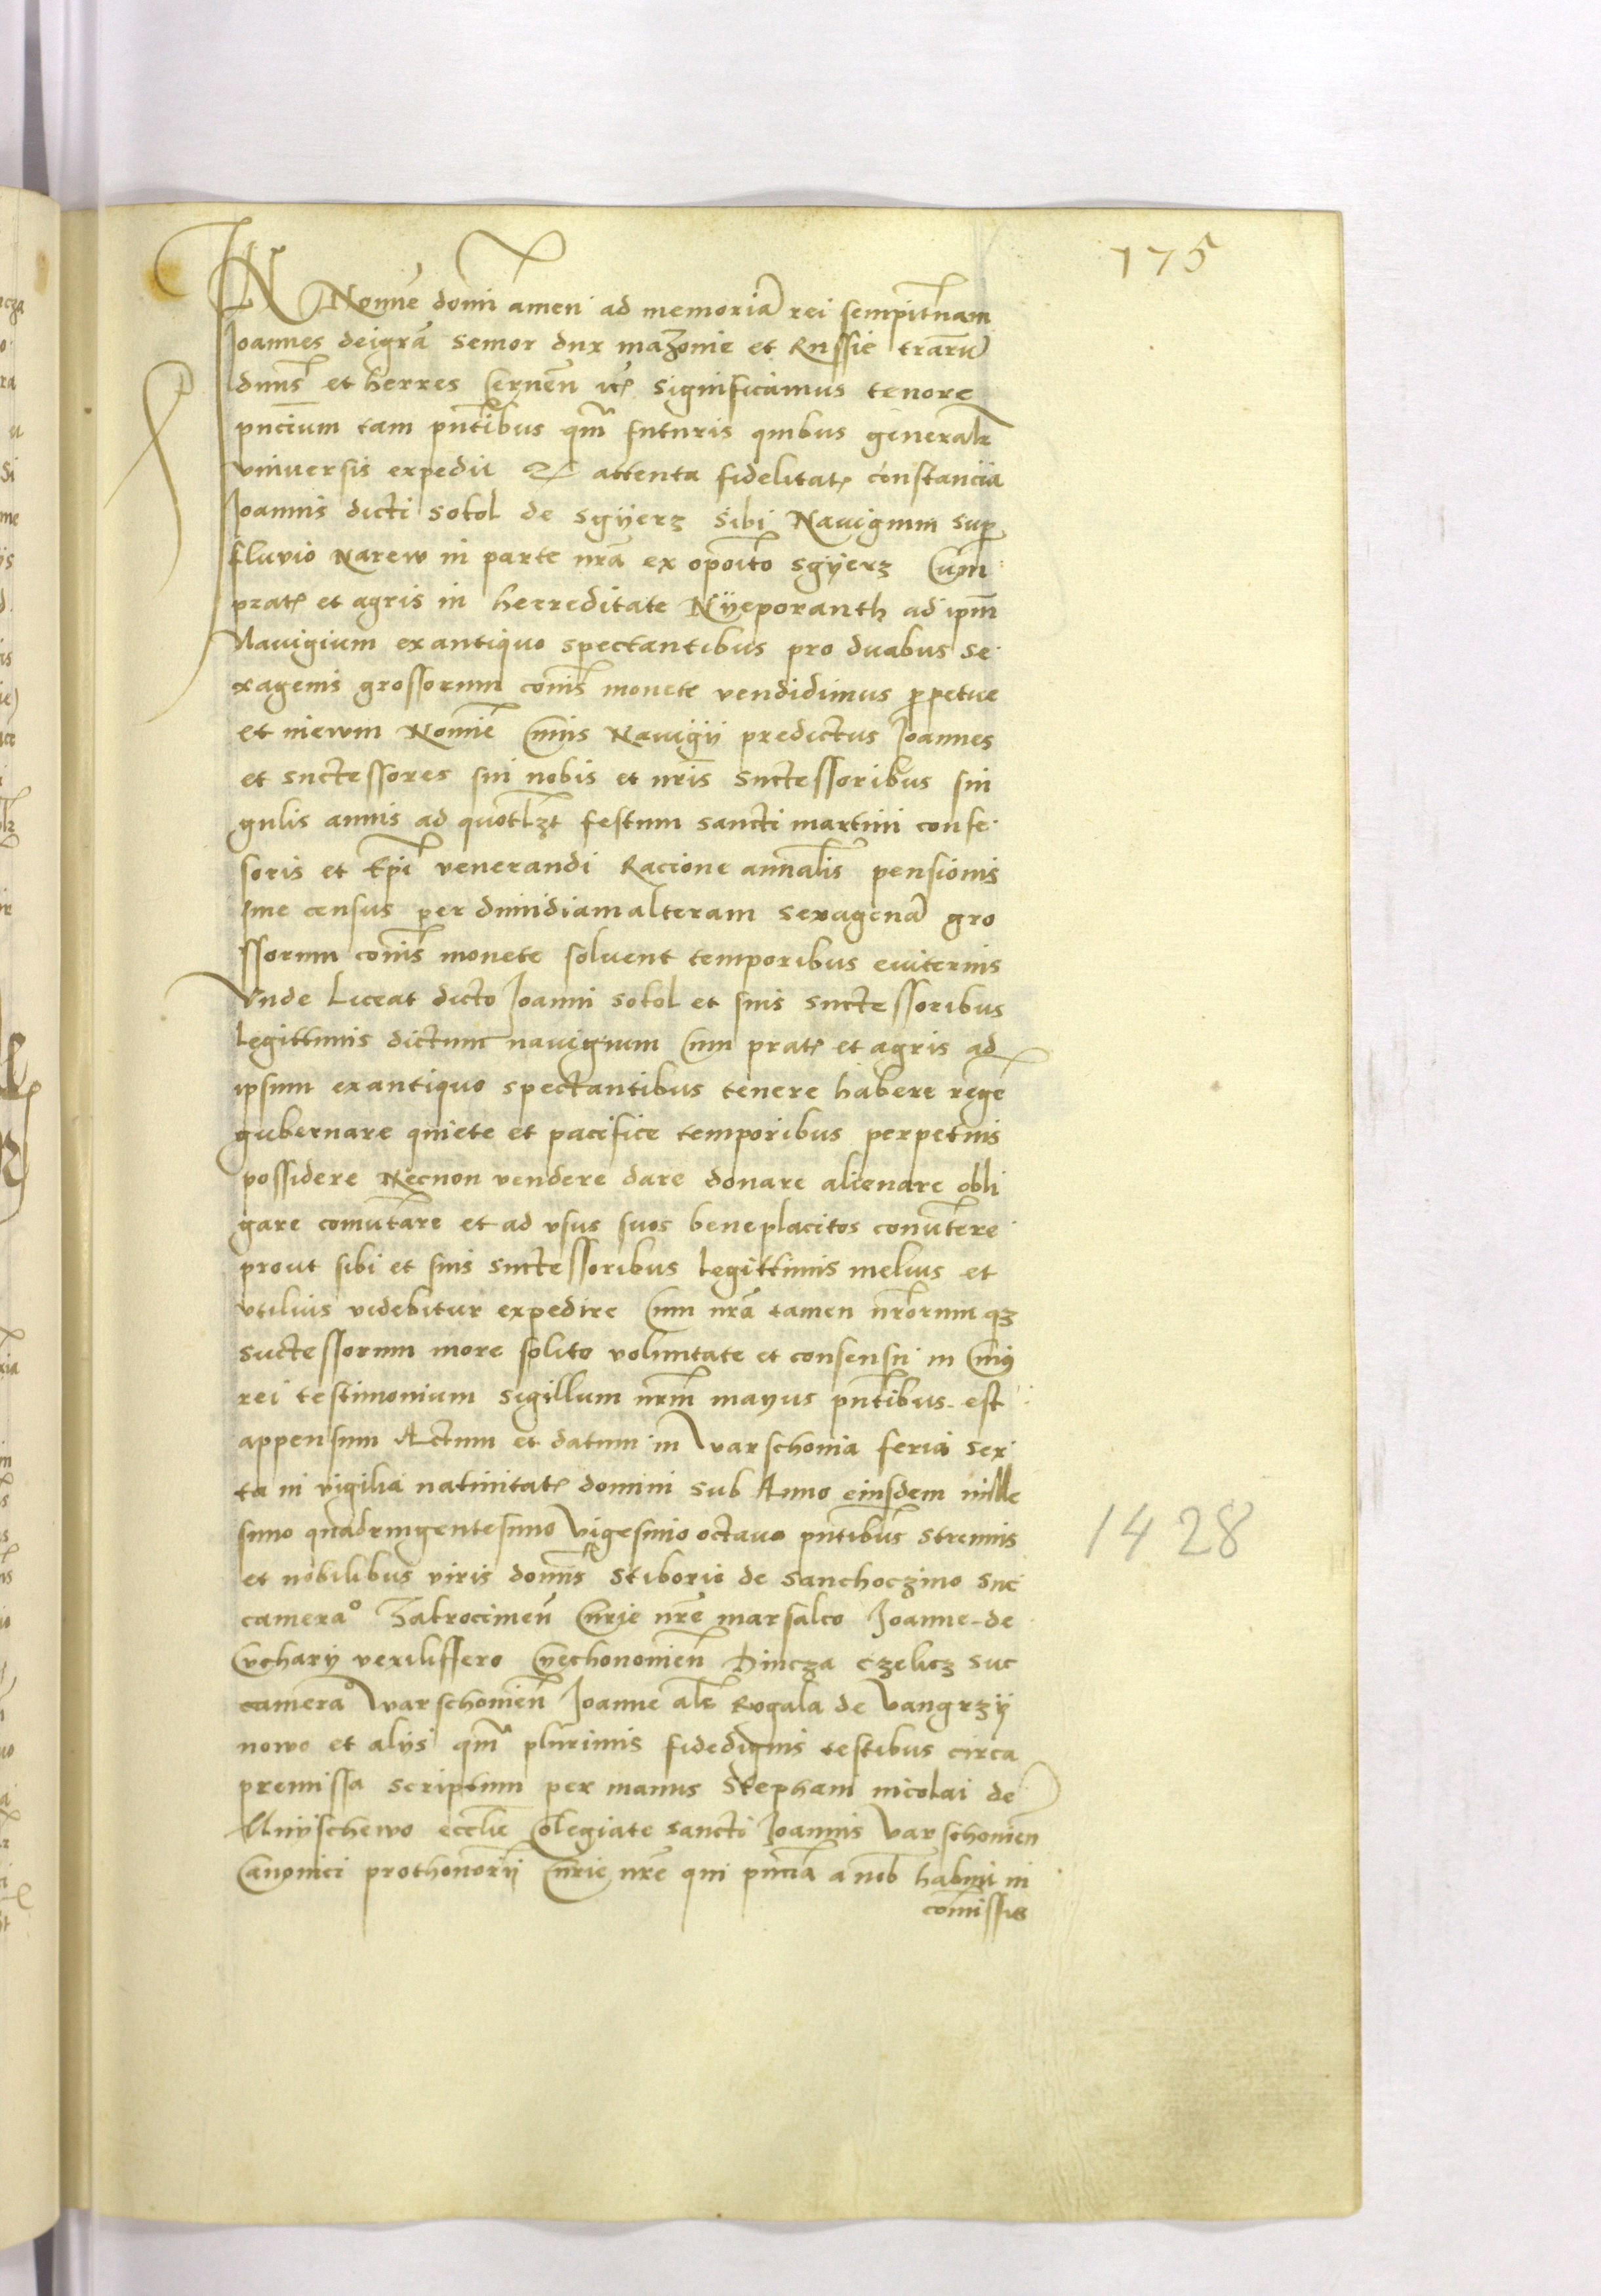 175
IN Nomie domi amen ad memoria rei sempitnam
Joannes deigra senior dux mazonie et Russie trarum
dnus et herres Cernen etc significamus tenore
pncium tam pntibus qm futuris quibus generalr
vniuersis expedit Q attenta fidelitat constancia
Joannis dicti sokol de sgyerz sibi Nauigium sup
fluvio Narew in parte nra ex oposito sgyerz Cum
prat et agris in herreditate Nyeporanth ad ipm
Nauigium ex antiquo spectantibus pro duabus se
xagenis grossorum cois monete vendidimus perpetue
et in ewm Nomie Cuius Nauigij predictus Joannes
et suctessores sui nobis et nris suctessoribus sin
gulis annis ad quotlzt festum sancti martini confe
soris et Epi venerandi Racione annalis pensionis
siue census per dimidiam alteram sexagena gro
ssorum cois monete soluent temporibus euiternis
Vnde Liceat dicto Joanni sokol et suis suctessoribus
legittimis dictum nauigium Cum prat et agris ad
ipsum ex antiquo spectantibus tenere habere rege
gubernare quiete et pacifice temporibus perpetuis
possidere Necnon vendere dare donare alienare obli
gare comutare et ad vsus suos beneplacitos conuertere
prout sibi et suis suctessoribus legittimis melius et
vtilius videbitur expedire Cum nra tamen nrorum qz
suctessorum more solito voluntate et consensu in Cuius
rei testimonium sigillum nrm mayus pntibus est
appensum Actum et datum in Varschouia feria sex
ta in vigilia natiuitat domini sub Anno eiusdem mille
simo quadringentesimo Vigesimo octauo pntibus strenuis
et nobilibus viris domis Stiborio de Sanchoczino suc
camera Zakrocimen Curie nre marsalco Joanne de
Vchary vexilissero Cyechonomien Dincza czelicz suc
camera Warschouien Joanne als Rogala de Vangrzy
nowo et alijs qm plurimis fidedignis testibus circa
premissa scriptum per manus Stephani nicolai de
Mnyschewo ecclie Colegiate sancti Joannis Varschouien
Canonici prothonorij Curie nre qui pncia a nob habuit in
comissis
1428